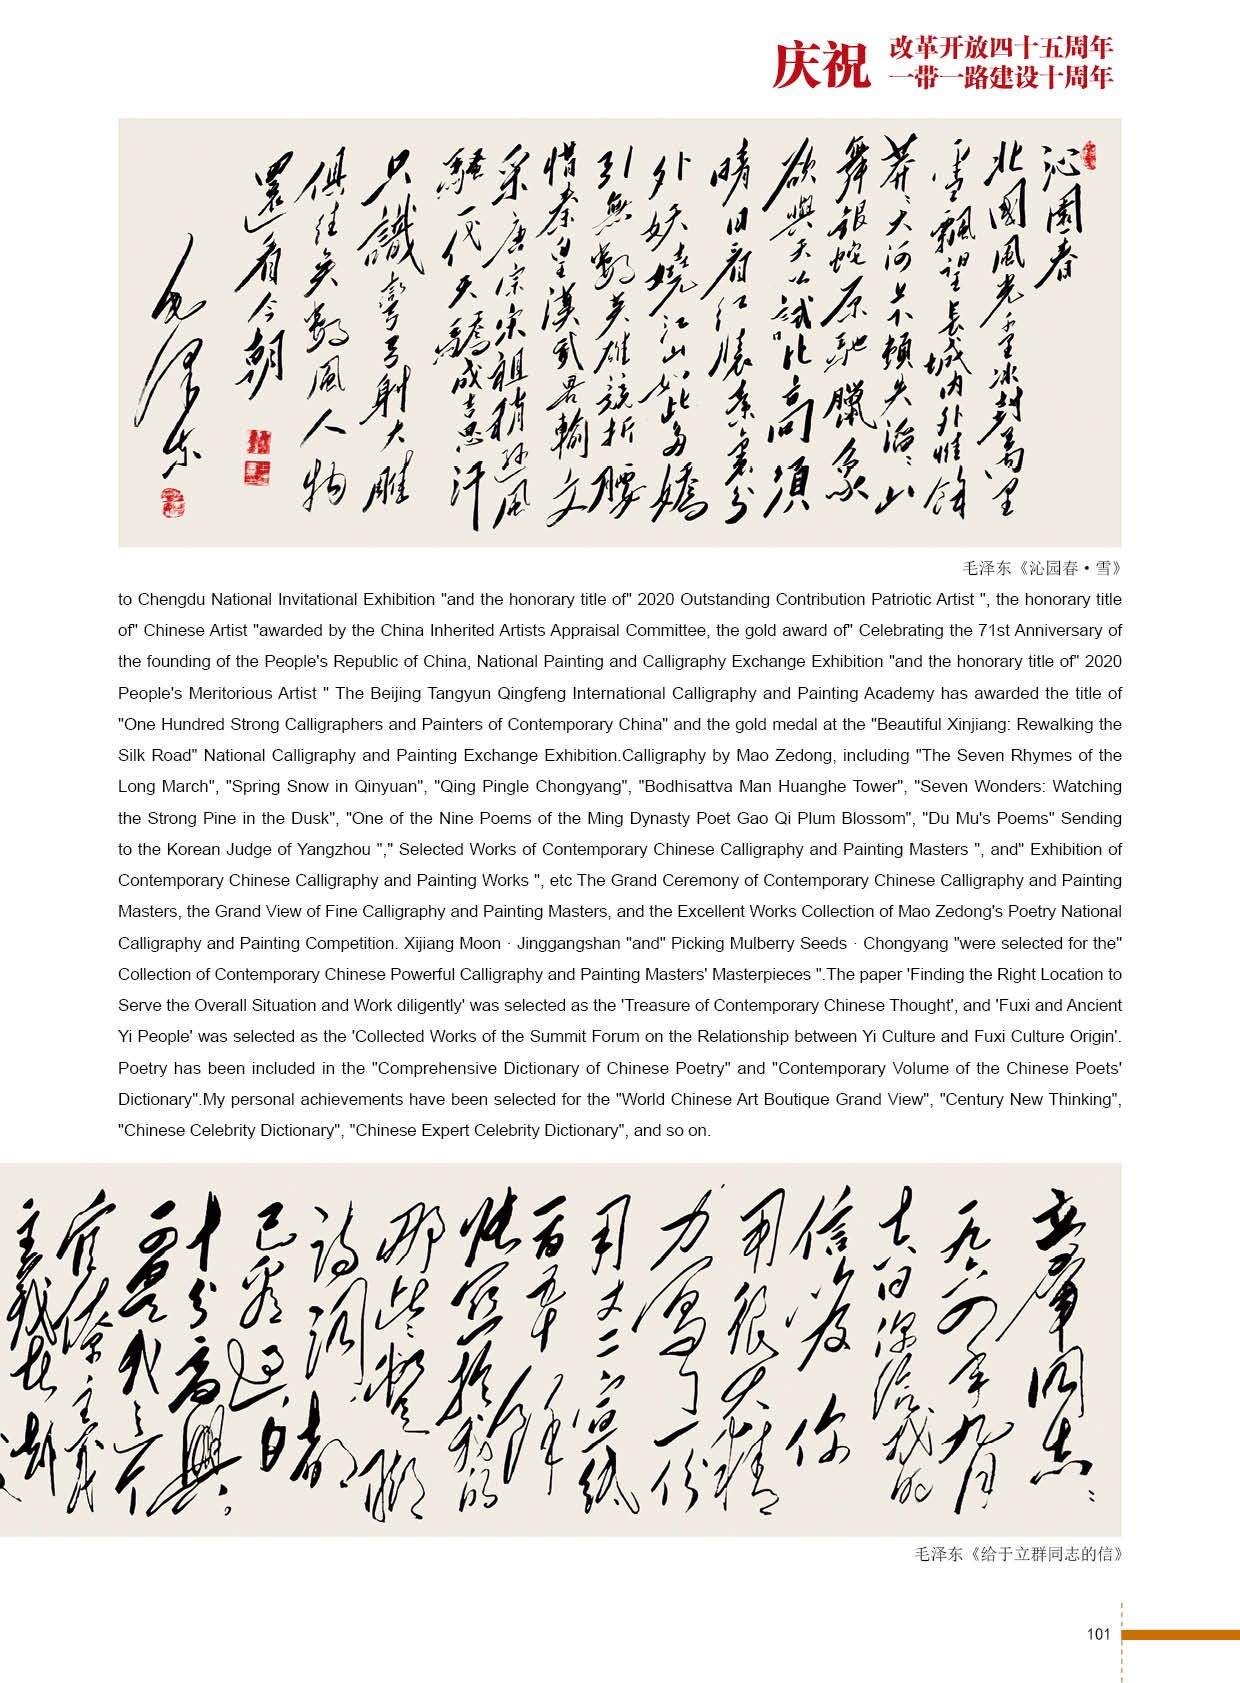 庆祝
改革开放四十五周年
一带一路建设十周年
沁園春
北國風光千里冰封萬里
雪飄望長城內外惟餘
莽〻大河上下頓失滔〻山
舞銀蛇原馳臘象
欲與天公試比高須
晴日看紅裝素裹分
外妖嬈江山如此多嬌
引無數英雄競折腰
惜秦皇漢武畧輸文
采唐宗宋祖稍遜風
騷一代天驕成吉思汗
只識彎弓射大雕
俱往矣數風人物
還看今朝
毛澤東
毛泽东《沁园春·雪》
to Chengdu National Invitational Exhibition "and the honorary title of" 2020 Outstanding Contribution Patriotic Artist ", the honorary title
of" Chinese Artist "awarded by the China Inherited Artists Appraisal Committee, the gold award of" Celebrating the 71st Anniversary of
the founding of the People's Republic of China, National Painting and Calligraphy Exchange Exhibition "and the honorary title of" 2020
People's Meritorious Artist " The Beijing Tangyun Qingfeng International Calligraphy and Painting Academy has awarded the title of
"One Hundred Strong Calligraphers and Painters of Contemporary China" and the gold medal at the "Beautiful Xinjiang: Rewalking the
Silk Road" National Calligraphy and Painting Exchange Exhibition.Calligraphy by Mao Zedong, including "The Seven Rhymes of the
Long March", "Spring Snow in Qinyuan", "Qing Pingle Chongyang", "Bodhisattva Man Huanghe Tower", "Seven Wonders: Watching
the Strong Pine in the Dusk", "One of the Nine Poems of the Ming Dynasty Poet Gao Qi Plum Blossom", "Du Mu's Poems" Sending
to the Korean Judge of Yangzhou "," Selected Works of Contemporary Chinese Calligraphy and Painting Masters ", and" Exhibition of
Contemporary Chinese Calligraphy and Painting Works ", etc The Grand Ceremony of Contemporary Chinese Calligraphy and Painting
Masters, the Grand View of Fine Calligraphy and Painting Masters, and the Excellent Works Collection of Mao Zedong's Poetry National
Calligraphy and Painting Competition. Xijiang Moon · Jinggangshan "and" Picking Mulberry Seeds · Chongyang "were selected for the"
Collection of Contemporary Chinese Powerful Calligraphy and Painting Masters' Masterpieces ".The paper 'Finding the Right Location to
Serve the Overall Situation and Work diligently' was selected as the 'Treasure of Contemporary Chinese Thought', and 'Fuxi and Ancient
Yi People' was selected as the 'Collected Works of the Summit Forum on the Relationship between Yi Culture and Fuxi Culture Origin'.
Poetry has been included in the "Comprehensive Dictionary of Chinese Poetry" and "Contemporary Volume of the Chinese Poets'
Dictionary".My personal achievements have been selected for the "World Chinese Art Boutique Grand View", "Century New Thinking",
"Chinese Celebrity Dictionary", "Chinese Expert Celebrity Dictionary", and so on.
立群同志：
一九六四年九月
六日深給我的
信收 你
用很大精
力寫了一份
用丈二宣紙
百五十 
 我的
那些蹩腳
詩詞 都
已看過，日
十分高興。
可是我
官僚主義
主義
毛泽东《给于立群同志的信》
101